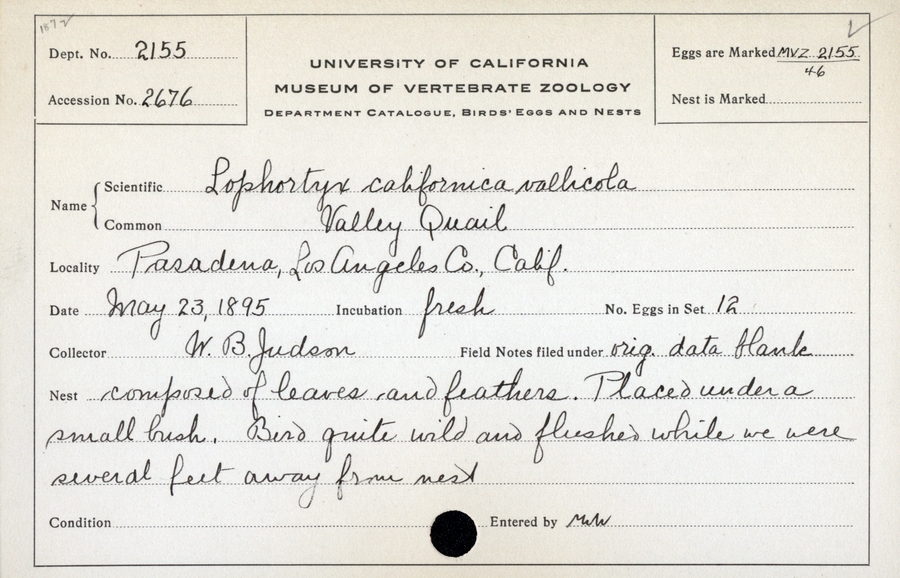 1872
Dept. No. 2155
Accession No. 2676
UNIVERSITY OF CALIFORNIA
MUSEUM OF VERTEBRATE ZOOLOGY
DEPARTMENT CATALOGUE, BIRDS' EGGS AND NESTS
Eggs are Marked MVZ 2155
46
Nest is Marked
Name
Scientific Lophortyx californica vallicola
Common Valley Quail
Locality Pasadena, Los Angeles Co., Calif.
Date May 23, 1895 Incubation fresh No. Eggs in Set 12
Collector W. B. Judson Field Notes filed under orig. data blank
Nest composed of leaves and feathers. Placed under a
small bush. Bird quite wild and flushed while we were
several feet away from nest
Condition Entered by